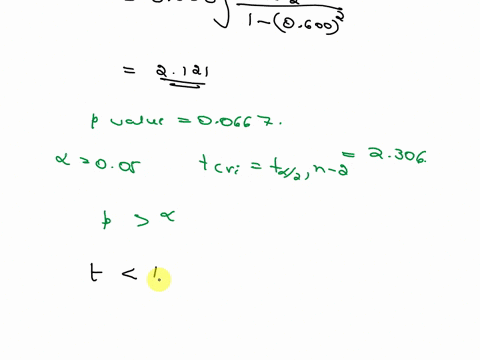 1-(0.600)²
= 2.121
p value = 0.0667.
α = 0.05 t cri = tα/2, n-2 = 2.306.
p > α
t <